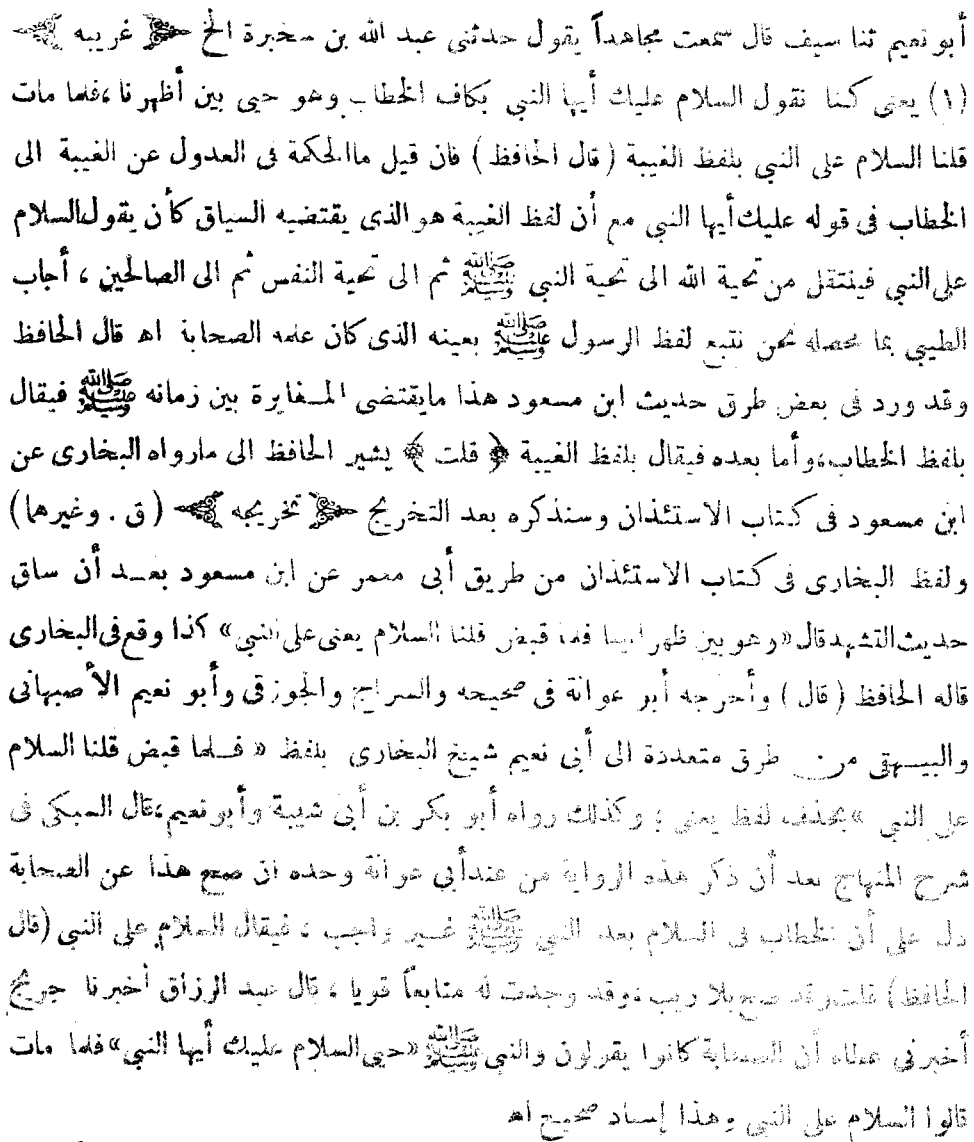 أبو نعيم ثنا سيف قال سمعت مجاهداً يقول حدثنى عبد الله بن سخبرة الخ ﴿ غريبه ﴾
(١) يعنى كنا نقول السلام عليك أيها النبي بكاف الخطاب وهو حى بين أظهرنا، فلما مات
قلنا السلام على النبي بلفظ الغيبة ( قال الحافظ ) فان قيل ما الحكمة فى العدول عن الغيبة الى
الخطاب فى قوله عليك أيها النبي مع أن لفظ الغيبة هو الذى يقتضيه السياق كأن يقول السلام
على النبي فينتقل من تحية الله الى تحية النبي ﷺ ثم الى تحية النفس ثم الى الصالحين ، أجاب
الطيبي بما محصله نحن نتبع لفظ الرسول ﷺ بعينه الذى كان علمه الصحابة اه قال الحافظ
وقد ورد فى بعض طرق حديث ابن مسعود هذا مايقتضى المغايرة بين زمانه ﷺ فيقال
بلفظ الخطاب، وأما بعده فيقال بلفظ الغيبة ﴿ قلت ﴾ يشير الحافظ الى مارواه البخارى عن
ابن مسعود فى كتاب الاستئذان وسنذكره بعد التخريج ﴿ تخريجه ﴾ ( ق . وغيرهما )
ولفظ البخارى فى كتاب الاستئذان من طريق أبى معمر عن ابن مسعود بعد أن ساق
حديث التشهد قال «وهو بين ظهرانينا فلما قبض قلنا السلام يعنى على النبي» كذا وقع فى البخارى
قاله الحافظ ( قال ) وأخرجه أبو عوانة فى صحيحه والسراج والجوزقى وأبو نعيم الأصبهانى
والبيهقى من طرق متعددة الى أبى نعيم شيخ البخارى بلفظ « فلما قبض قلنا السلام
على النبي » بحذف لفظ يعنى ؛ وكذلك رواه أبو بكر بن أبى شيبة وأبو نعيم، قال السبكى فى
شرح المنهاج بعد أن ذكر هذه الرواية من عند أبى عوانة وحده ان صح هذا عن الصحابة
دل على أن الخطاب فى السلام بعد النبي ﷺ غير واجب ، فيقال السلام على النبي (قال
الحافظ) قلت وقد صح بلا ريب، وقد وجدت له متابعاً قويا ، قال عبد الرزاق أخبرنا جريج
أخبرنى عطاء أن الصحابة كانوا يقولون والنبي ﷺ «حى السلام عليك أيها النبي» فلما مات
قالوا السلام على النبي وهذا إسناد صحيح اه